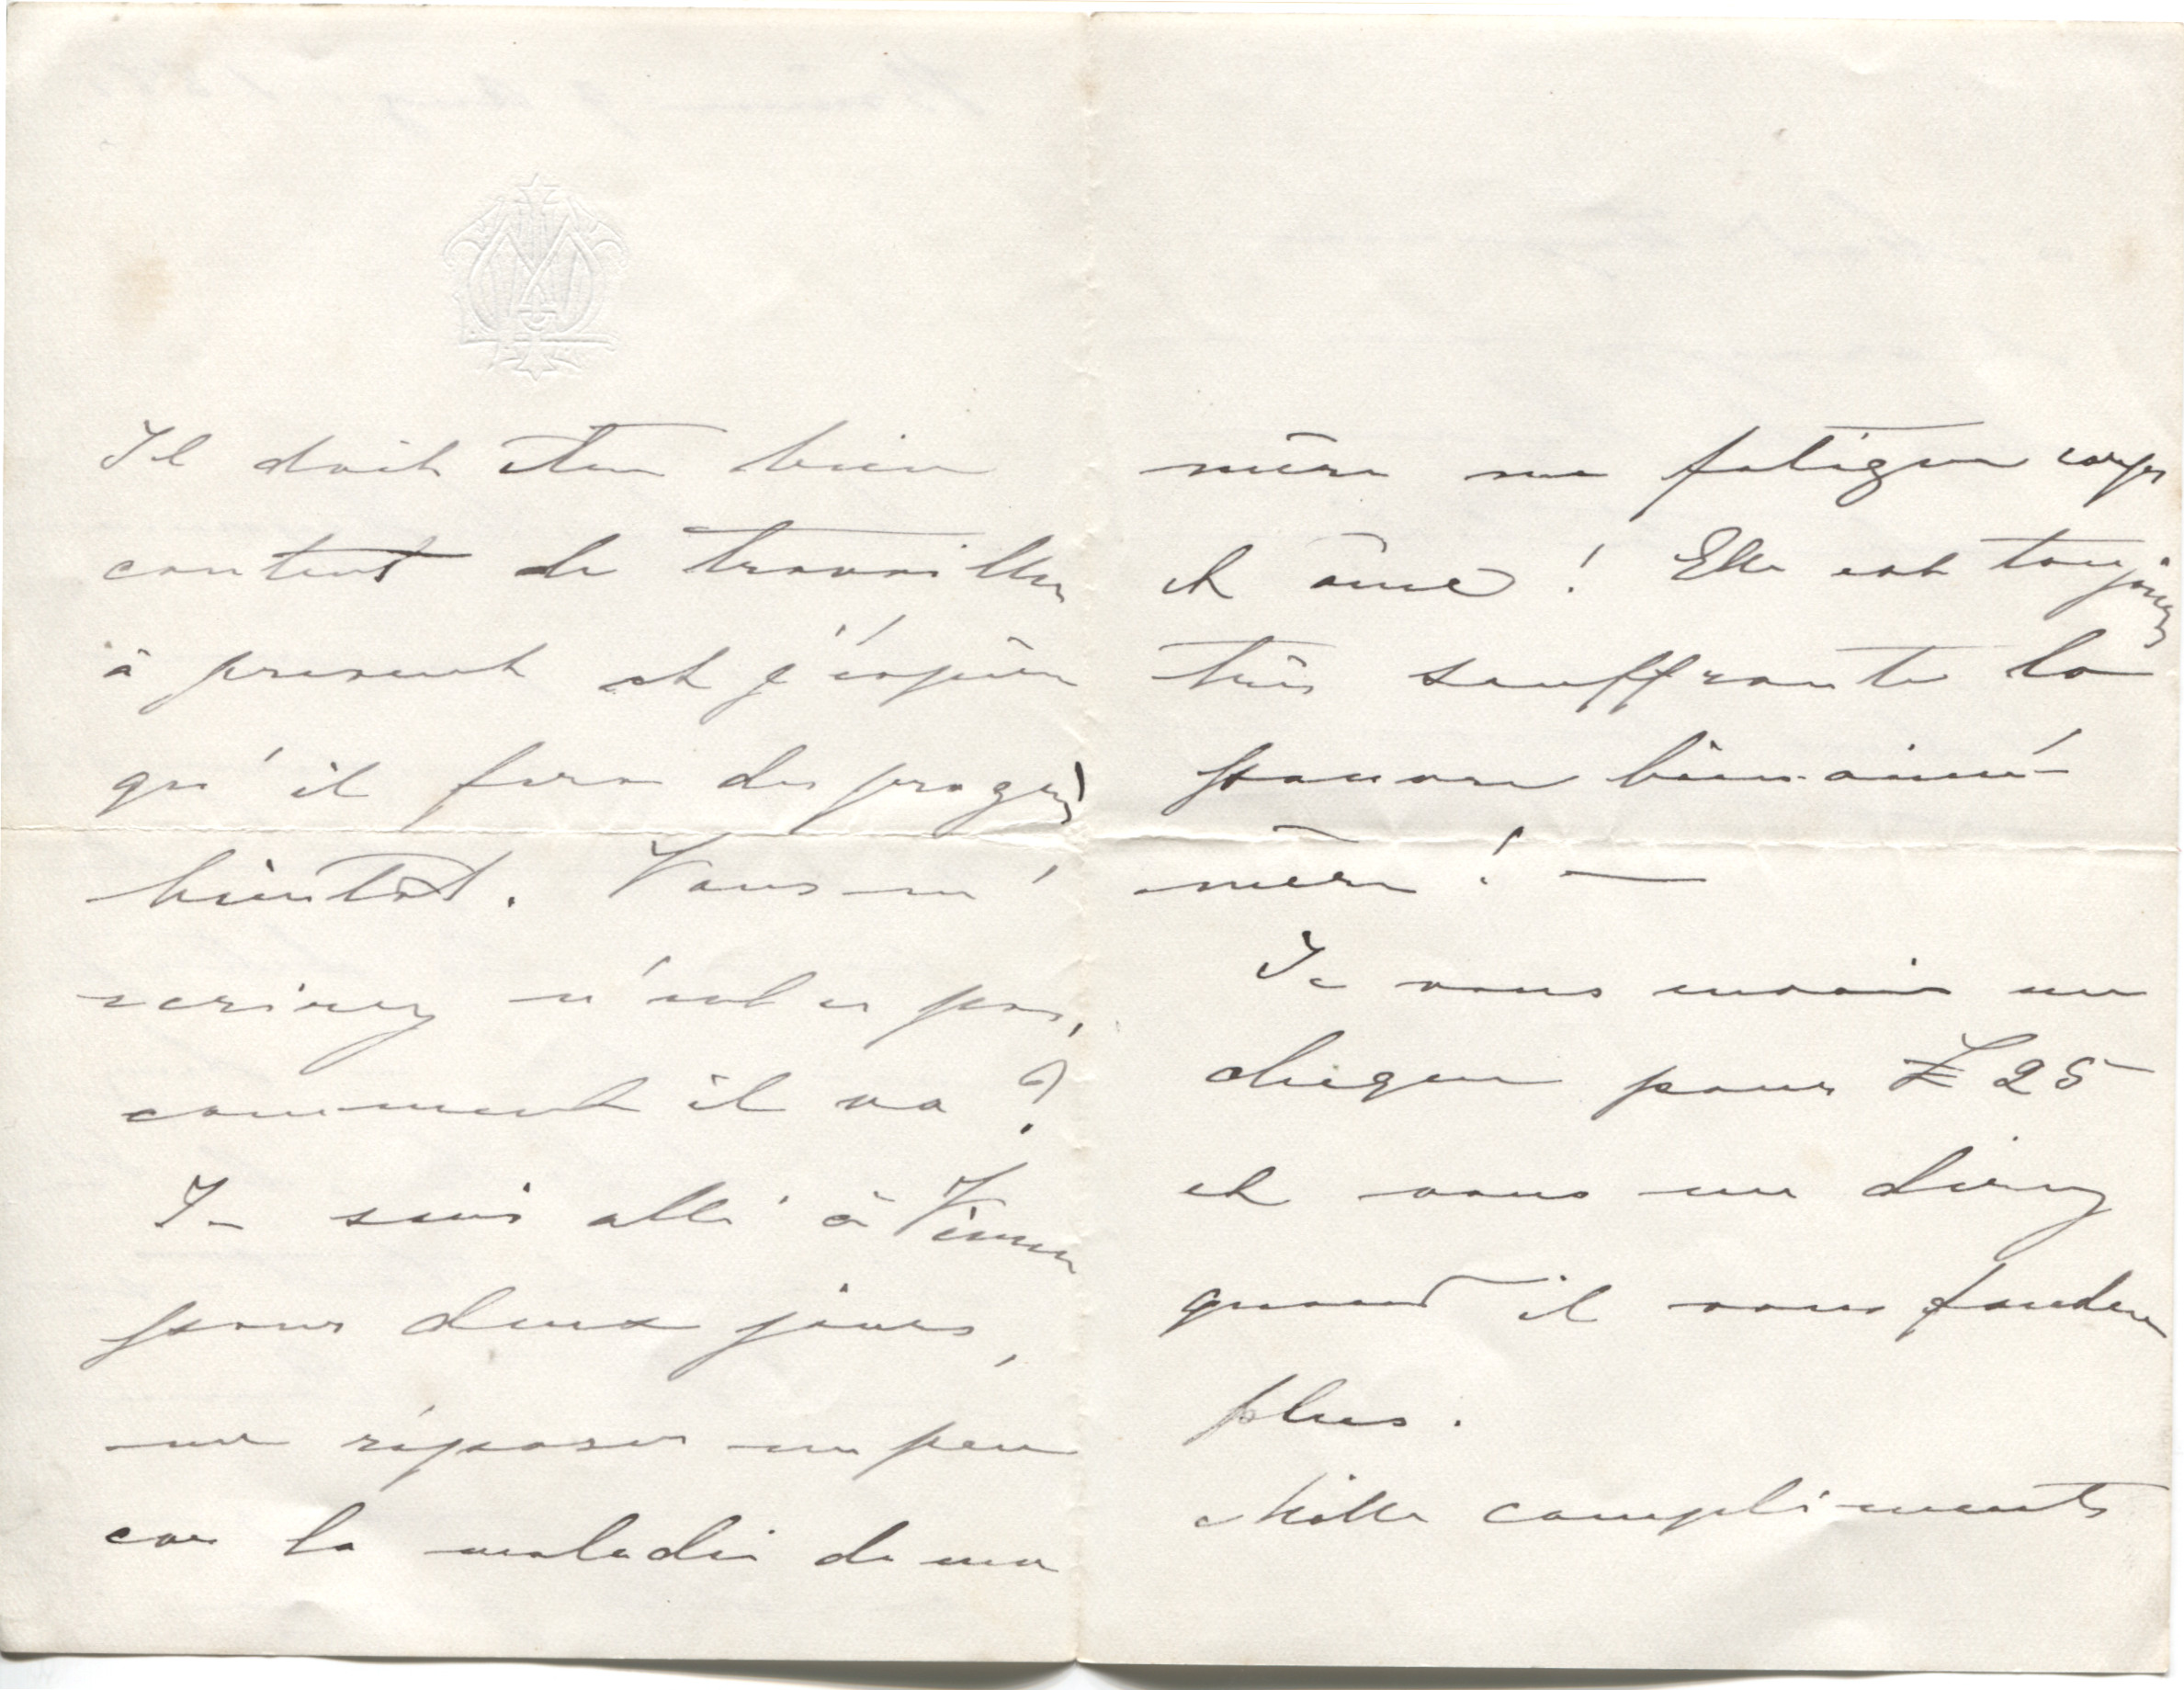 Il doit être bien
content de travailler
à present et j'éspère
qu'il fera des progrès
bientôt. Vous m'
ecrirez n'est ce pas,
comment il va?
Je suis allé à Vienne
pour deux jours,
me réposer un peu
car la maladie de ma
mère me fatigue corps
et âme! Elle est toujours
très souffrante la
pauvre bien-aimé-
mère! —
Je vous envoie un
cheque pour £ 25
et vous me direz
quand il vous faudra
plus.
Mille compliments